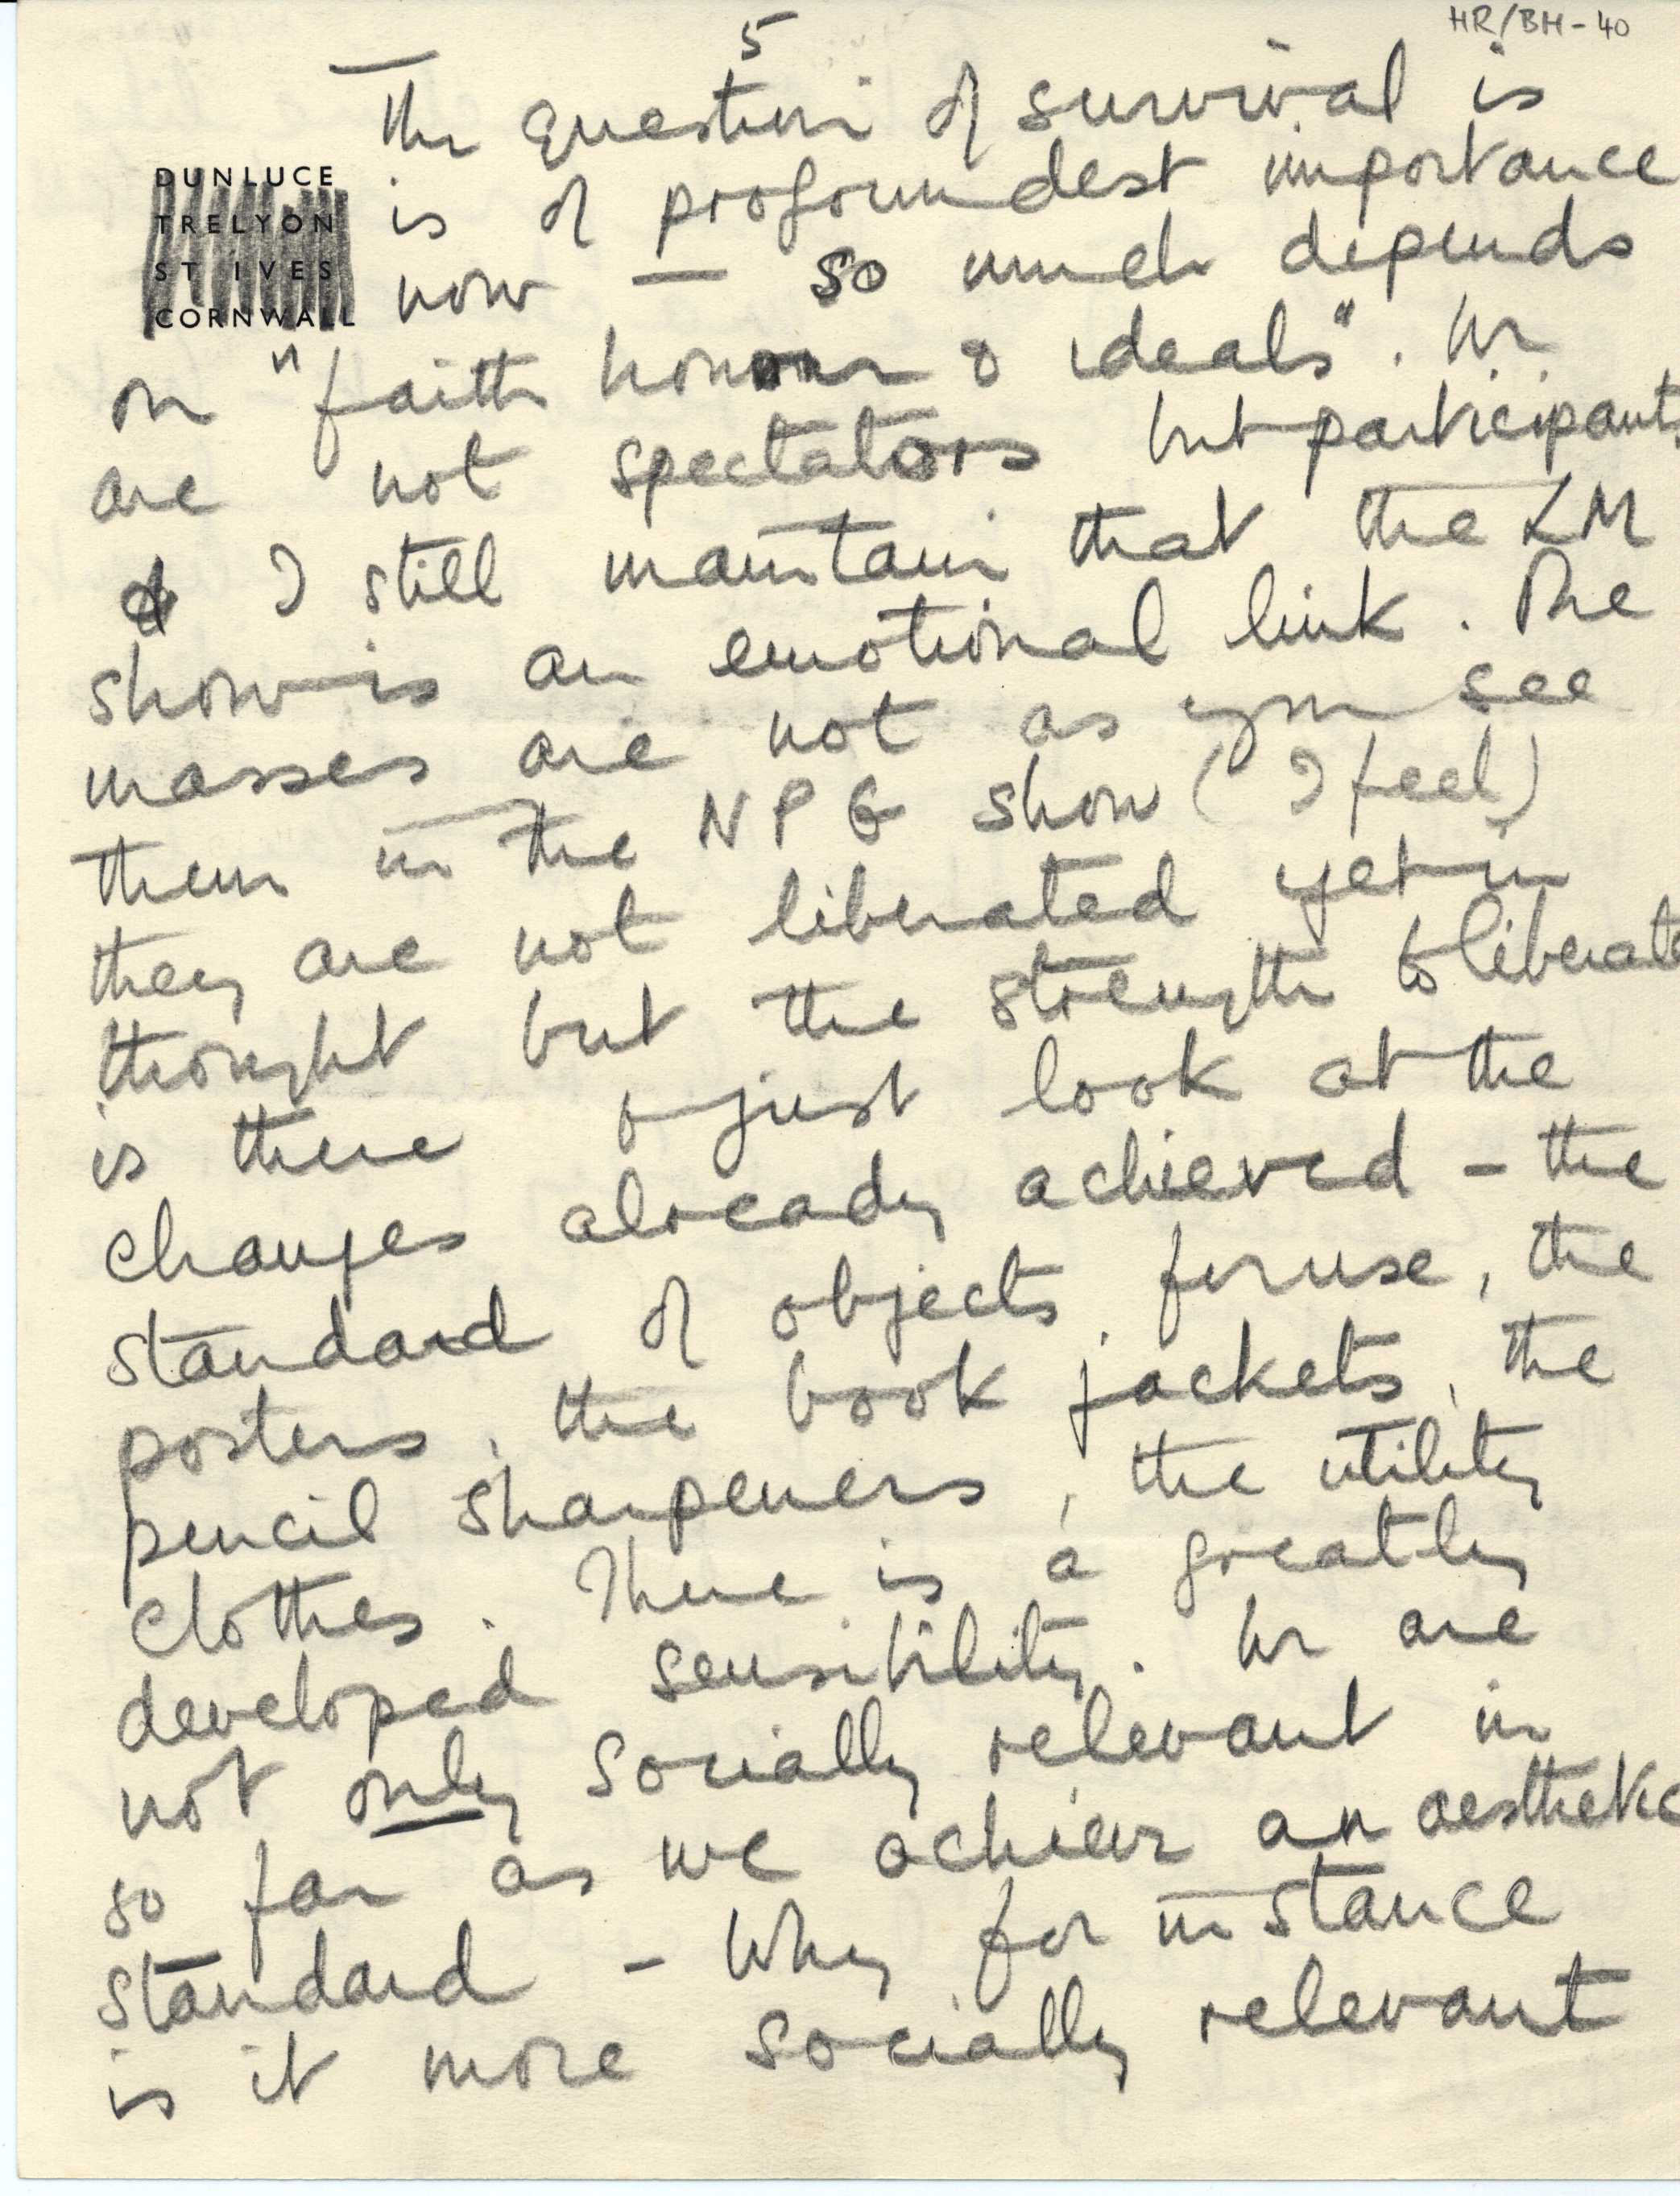 HR/BH-40
5
The question of survival is
DUNLUCE
TRELYON
ST. IVES
CORNWALL
is of profoundest importance
now — so much depends
on "faith honour & ideals". We
are not spectators but participants
& I still maintain that the LM
show is an emotional link. The
masses are not as you see
them in the NPG show (I feel)
they are not liberated yet in
thought but the strength to liberate
is there & just look at the
changes already achieved - the
standard of objects for use, the
posters, the book jackets, the
pencil sharpeners, the utility
clothes. There is a greatly
developed sensibility. We are
not only socially relevant in
so far as we achieve an aesthetic
standard - Why for instance
is it more socially relevant